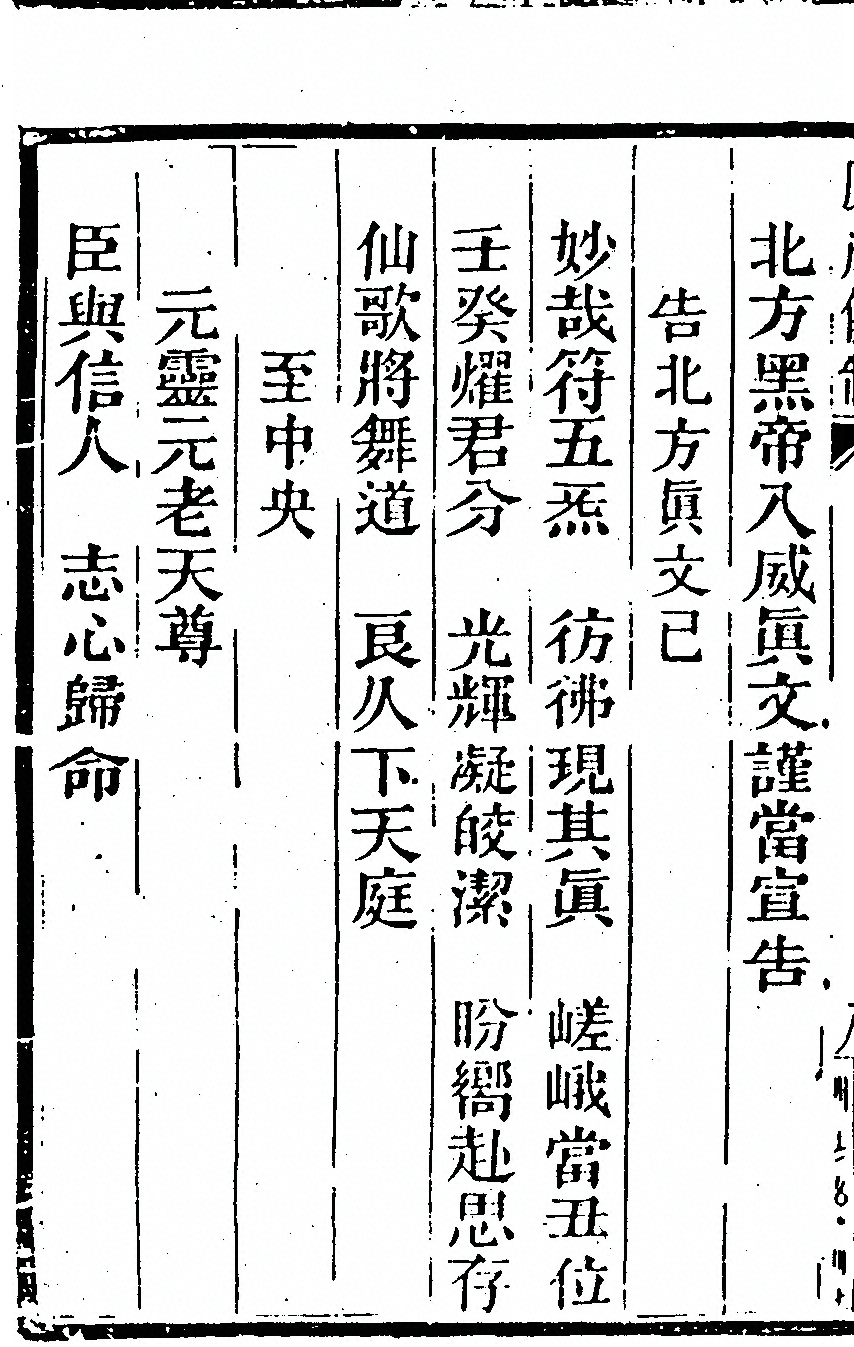 北方黑帝八威眞文謹當宣告
告北方眞文已
妙哉符五炁　彷彿現其眞　嵯峨當丑位
壬癸燿君分　光輝凝皎潔　盼嚮赴思存
仙歌將舞道　良久下天庭
至中央
元靈元老天尊
臣與信人　志心歸命